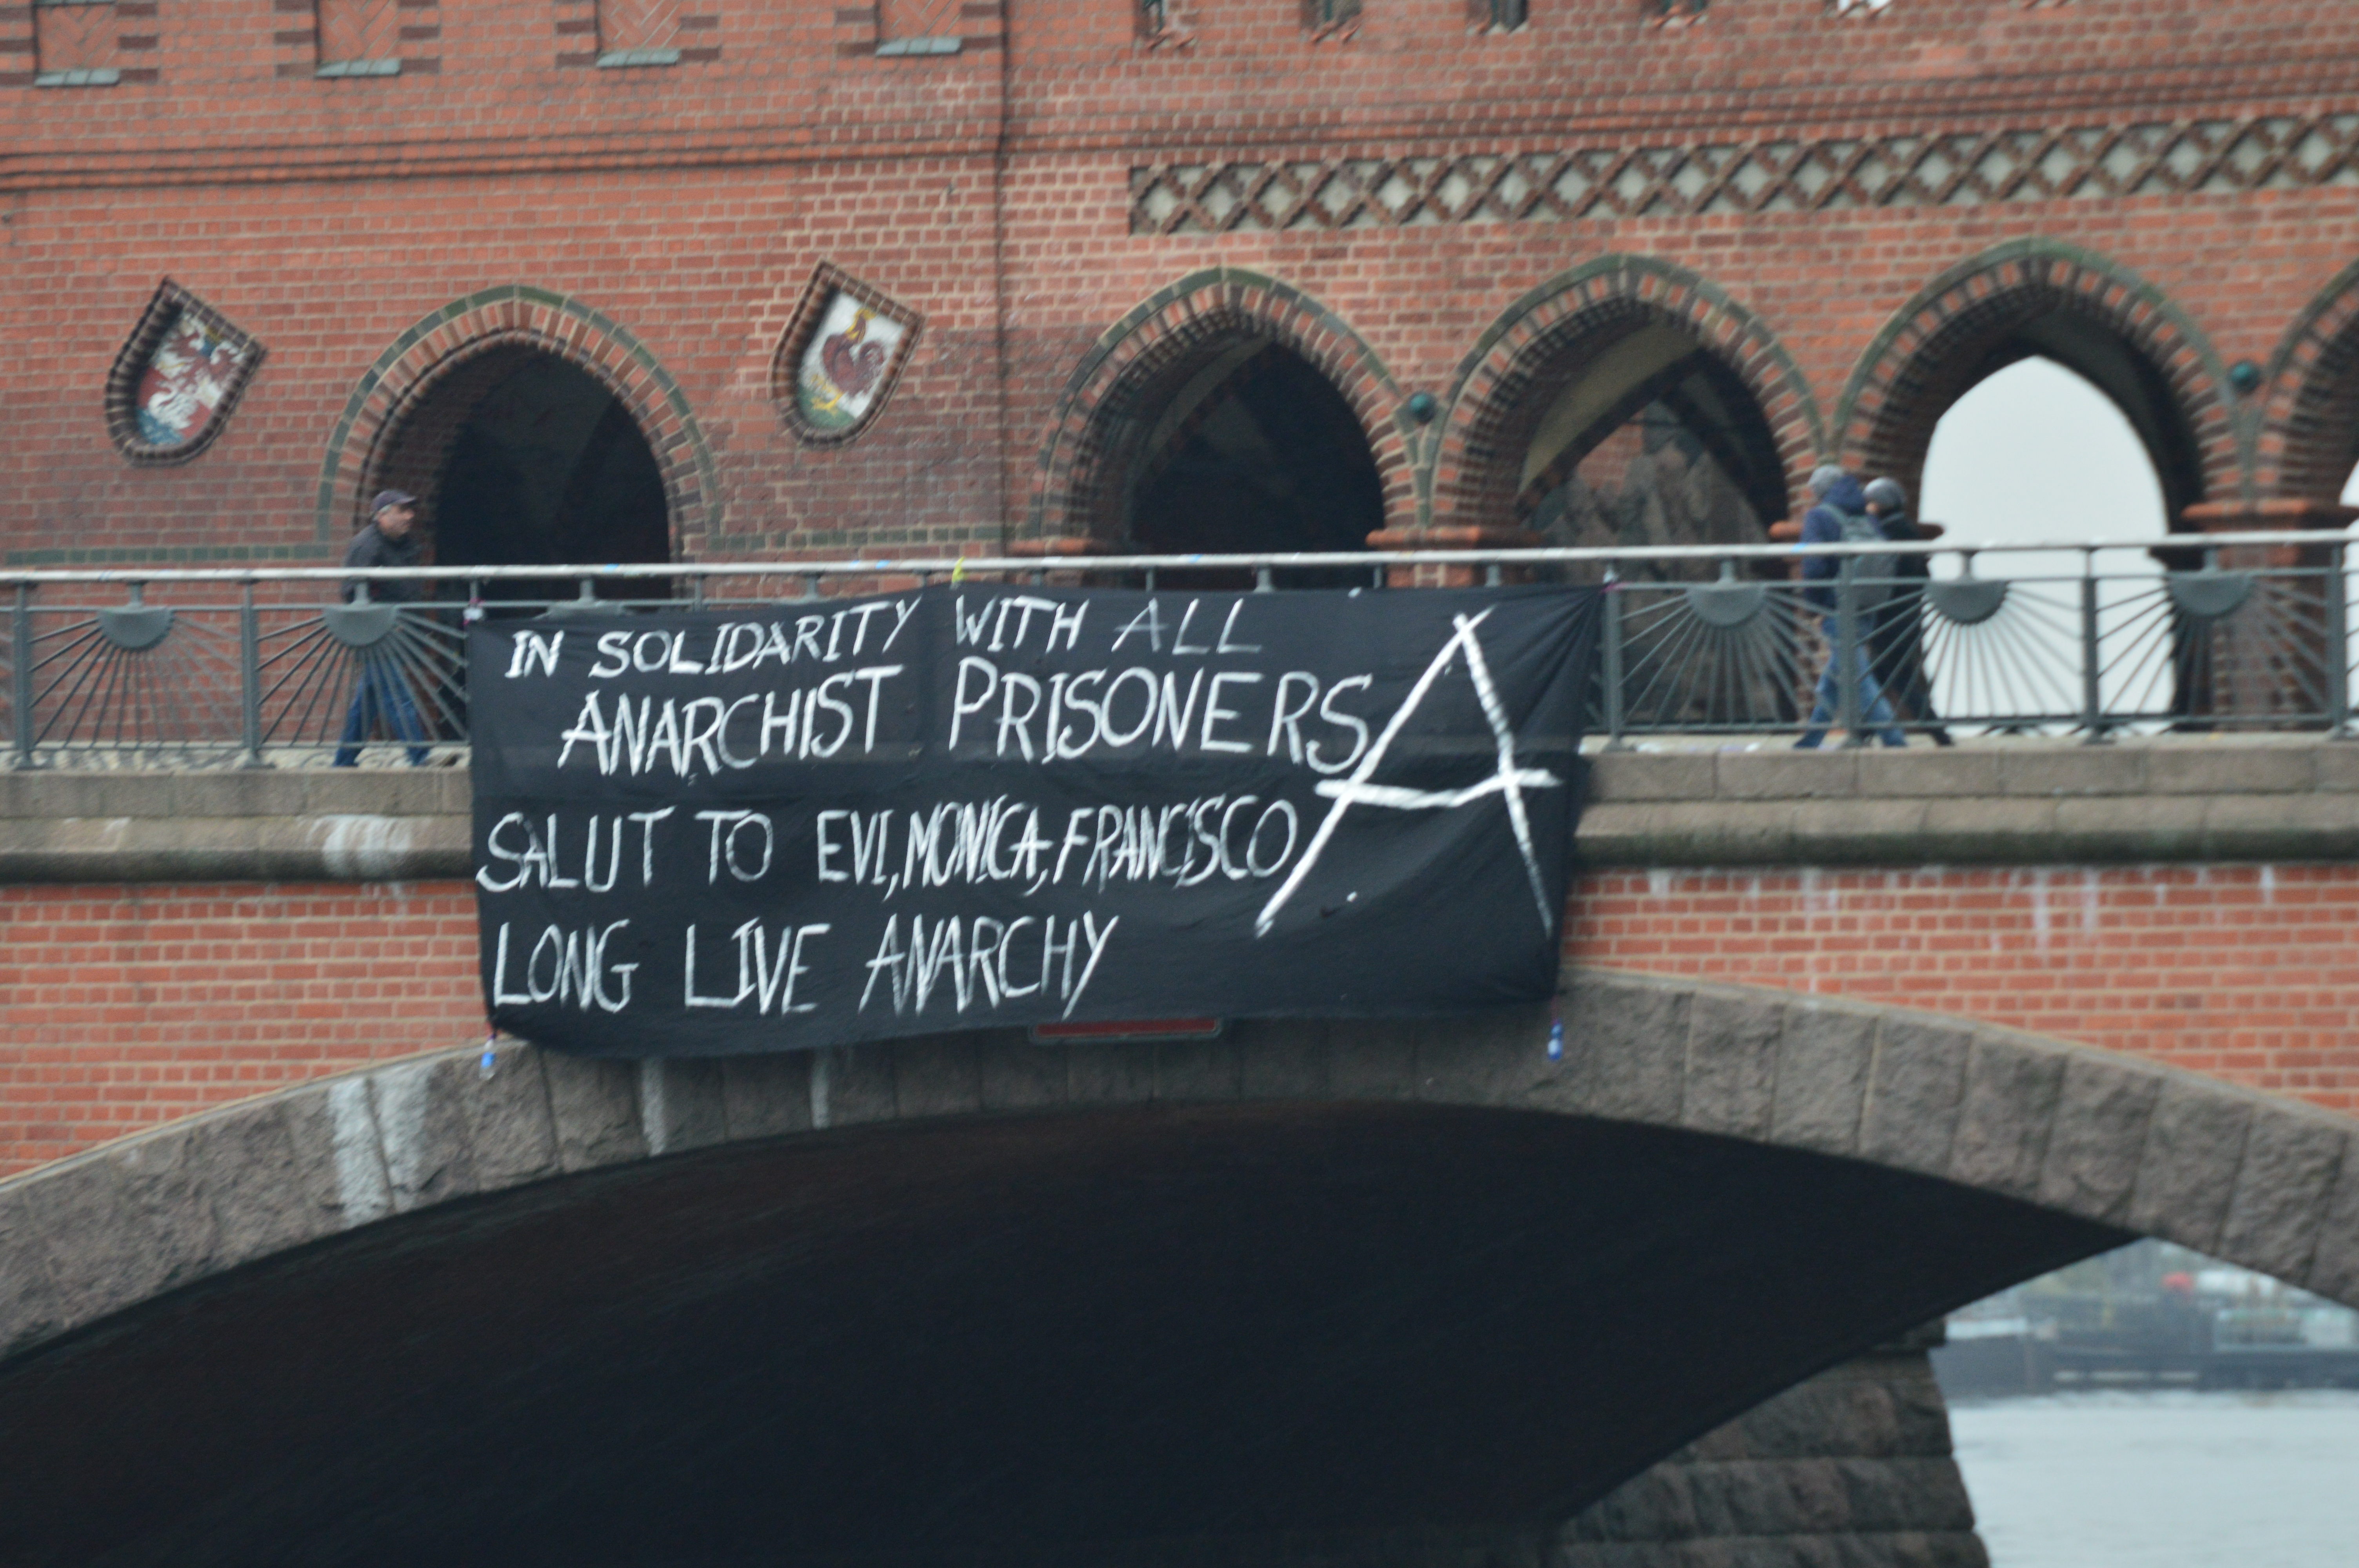 IN SOLIDARITY WITH ALL
ANARCHIST PRISONERS
A
SALUT TO EVI, MONICA, FRANCISCO
LONG LIVE ANARCHY